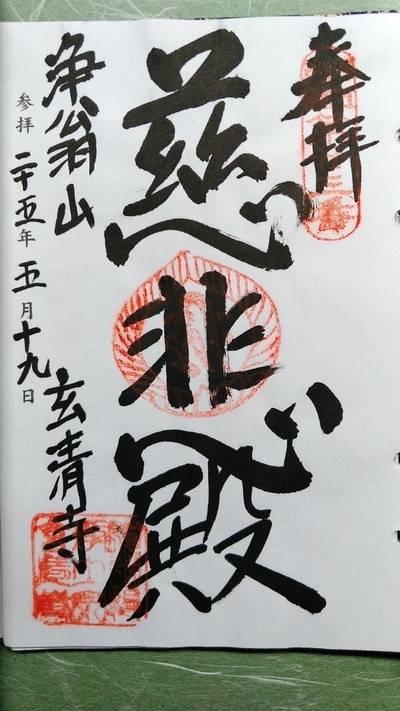 奉拝
慈悲殿
浄翁山 玄清寺
参拝 二十五年 五月十九日